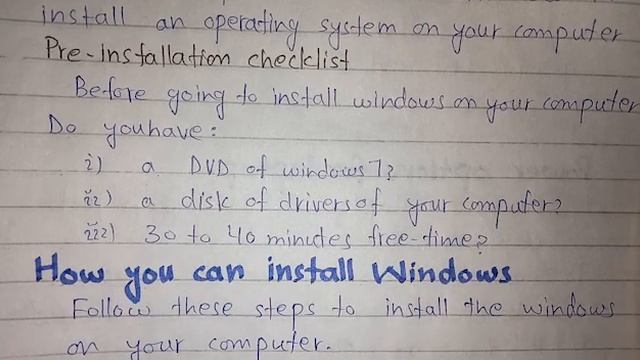 install an operating system on your computer
Pre-installation checklist
Before going to install windows on your computer
Do you have:
i) a DVD of windows 7?
ii) a disk of drivers of your computer?
iii) 30 to 40 minutes free-time?
How you can install Windows
Follow these steps to install the windows
on your computer.